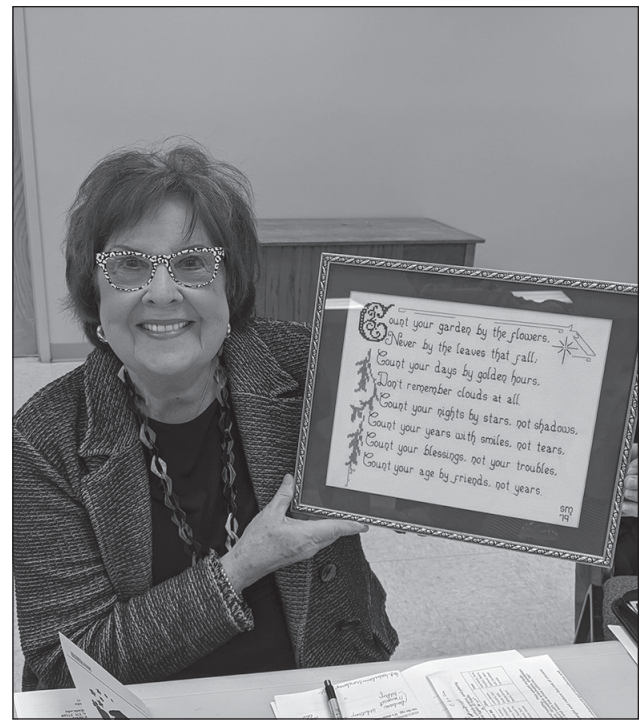 Count your garden by the flowers,
Never by the leaves that fall;
Count your days by golden hours,
Don't remember clouds at all.
Count your nights by stars, not shadows,
Count your years with smiles, not tears,
Count your blessings, not your troubles,
Count your age by friends, not years.
SM
'79